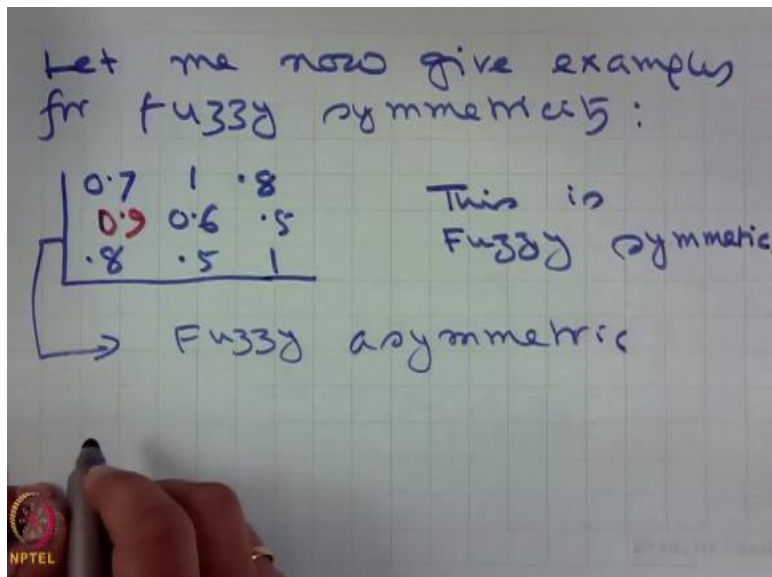 Let me now give examples
for Fuzzy symmetricity:
0.7 1 .8
0.9 0.6 .5
.8 .5 1
This is
Fuzzy symmetric
Fuzzy asymmetric
NPTEL